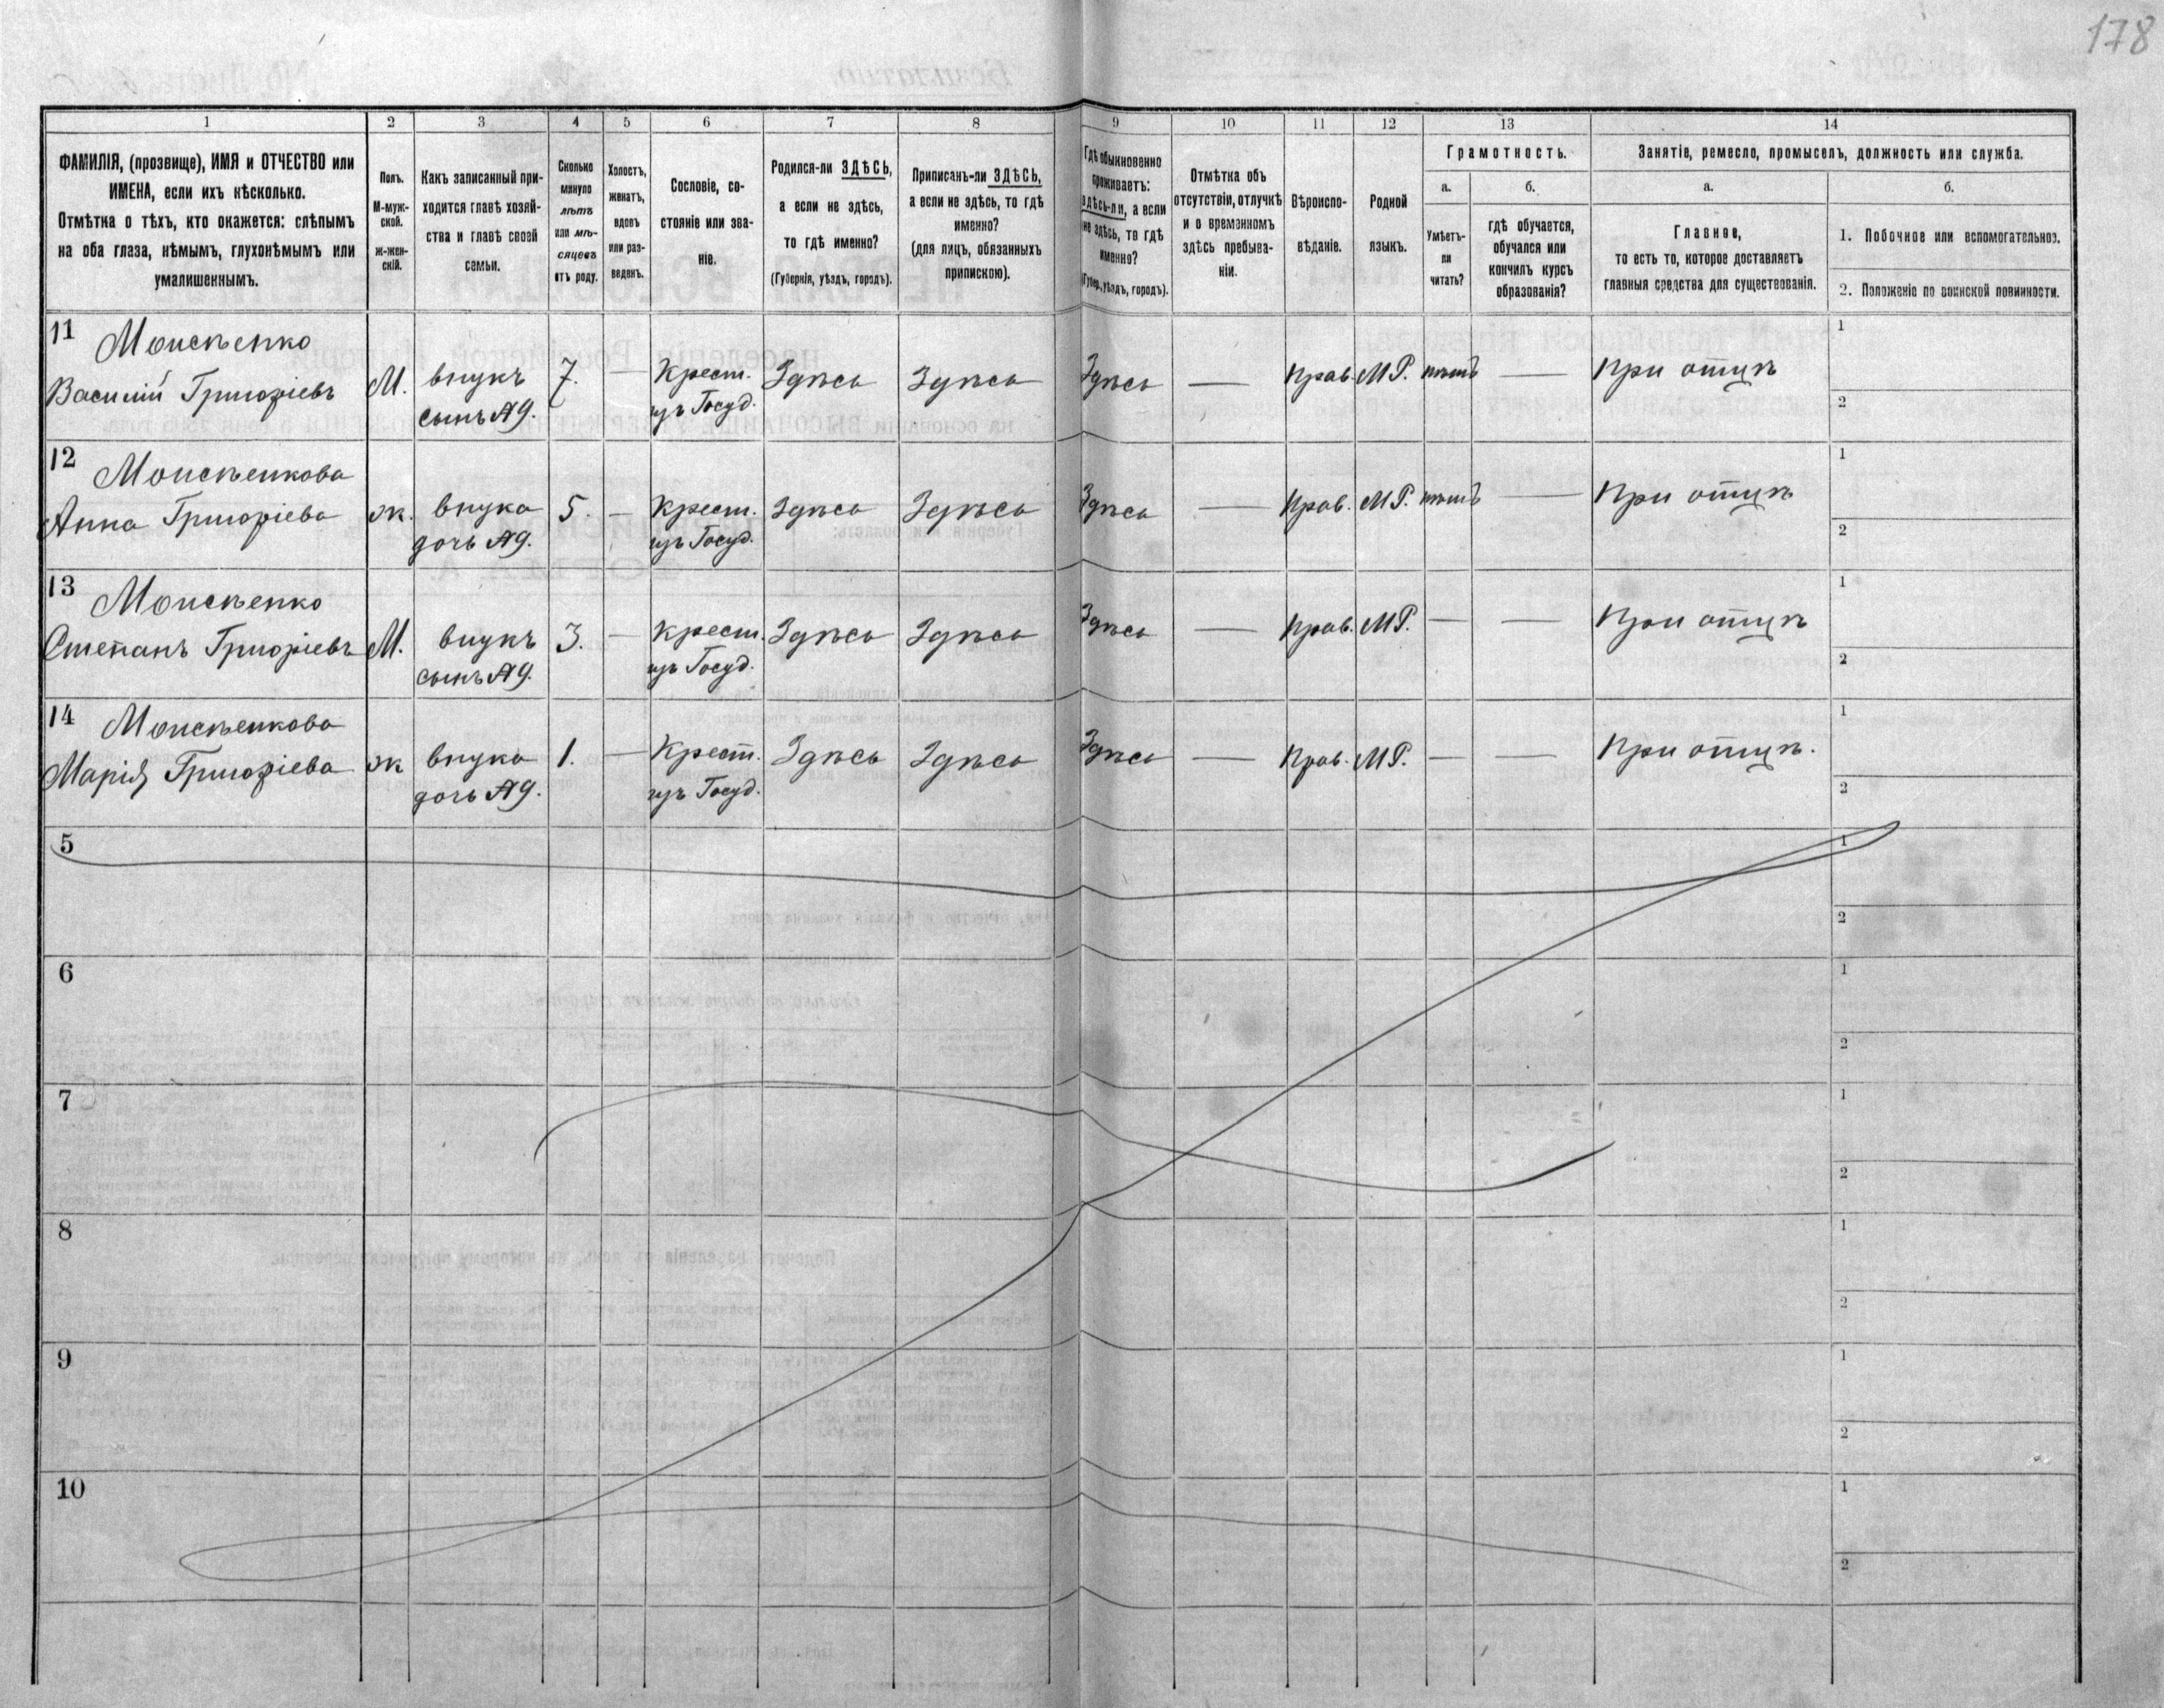 178
1 2 3 4 5 6 7 8 9 10 11 12 13 14
ФАМИЛІЯ, (прозвище), ИМЯ и ОТЧЕСТВО или
ИМЕНА, если ихъ нѣсколько.
Отмѣтка о тѣхъ, кто окажется: слѣпымъ
на оба глаза, нѣмымъ, глухонѣмымъ или
умалишеннымъ.
Полъ.
М-муж-
ской.
Ж-жен-
скій.
Какъ записанный при-
ходится главѣ хозяй-
ства и главѣ своей
семьи.
Сколько
минуло
лѣтъ
или мѣ-
сяцевъ
отъ роду.
Холостъ,
женатъ,
вдовъ
или раз-
веденъ.
Сословіе, со-
стояніе или зва-
ніе.
Родился-ли ЗДѢСЬ,
а если не здѣсь,
то гдѣ именно?
(Губернія, уѣздъ, городъ).
Приписанъ-ли ЗДѢСЬ,
а если не здѣсь, то гдѣ
именно?
(для лицъ, обязанныхъ
припискою).
Гдѣ обыкновенно
проживаетъ:
здѣсь-ли, а если
не здѣсь, то гдѣ
именно?
(Губер., уѣздъ, городъ).
Отмѣтка объ
отсутствіи, отлучкѣ
и о временномъ
здѣсь пребыва-
ніи.
Вѣроиспо-
вѣданіе.
Родной
языкъ.
Грамотность.
а.
Умѣетъ-
ли
читать?
б.
гдѣ обучается,
обучался или
кончилъ курсъ
образованія?
Занятіе, ремесло, промыселъ, должность или служба.
а.
Главное,
то есть то, которое доставляетъ
главныя средства для существованія.
б.
1. Побочное или вспомогательное.
2. Положеніе по воинской повинности.
11 Моисѣенко
Василій Григоріевъ М. внукъ 7. — Крест. Здѣсь Здѣсь Здѣсь — Прав. МР. нѣтъ — При отцѣ 1
сынъ А9. изъ Госуд. 2
12 Моисѣенкова
Анна Григоріева ж. внука 5. — Крест. Здѣсь Здѣсь Здѣсь — Прав. МР. нѣтъ — При отцѣ 1
дочь А9. изъ Госуд. 2
13 Моисѣенко
Степанъ Григоріевъ М. внукъ 3. — Крест. Здѣсь Здѣсь Здѣсь — Прав. МР. — — При отцѣ 1
сынъ А9. изъ Госуд. 2
14 Моисѣенкова
Марія Григоріева ж внука 1. — Крест. Здѣсь Здѣсь Здѣсь — Прав. МР. — — При отцѣ. 1
дочь А9. изъ Госуд. 2
5 1
2
6 1
2
7 1
2
8 1
2
9 1
2
10 1
2